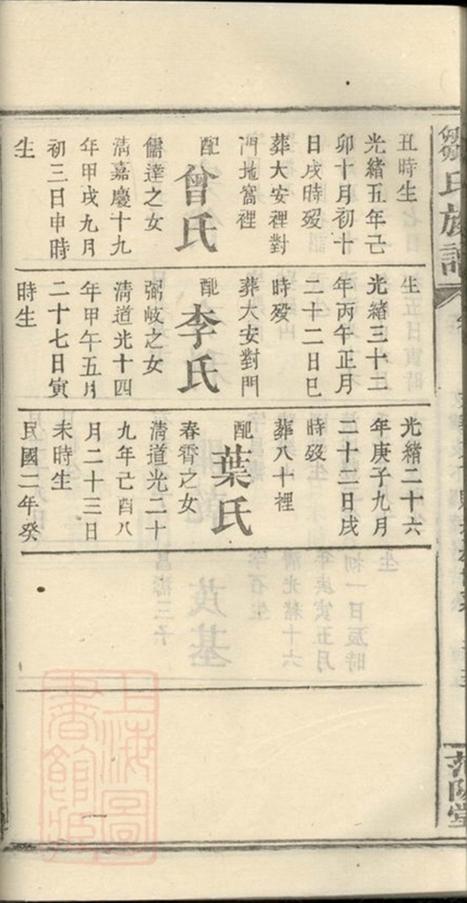 鄒氏族譜
丑時生
光緒五年己
卯十月初十
日戌時歿
葬大安裡對
門地窩裡
配
曾氏
儒達之女
清嘉慶十九
年甲戌九月
初三日申時
生
生
光緒三十二
年丙午正月
二十二日巳
時歿
葬大安對門
配
李氏
弼岐之女
清道光十四
年甲午五月
二十七日寅
時生
光緒二十六
年庚子九月
二十二日戌
時歿
葬八十裡
配
葉氏
春霄之女
清道光二十
九年己酉八
月二十三日
未時生
民國二年癸
范陽堂
上海圖
書館藏